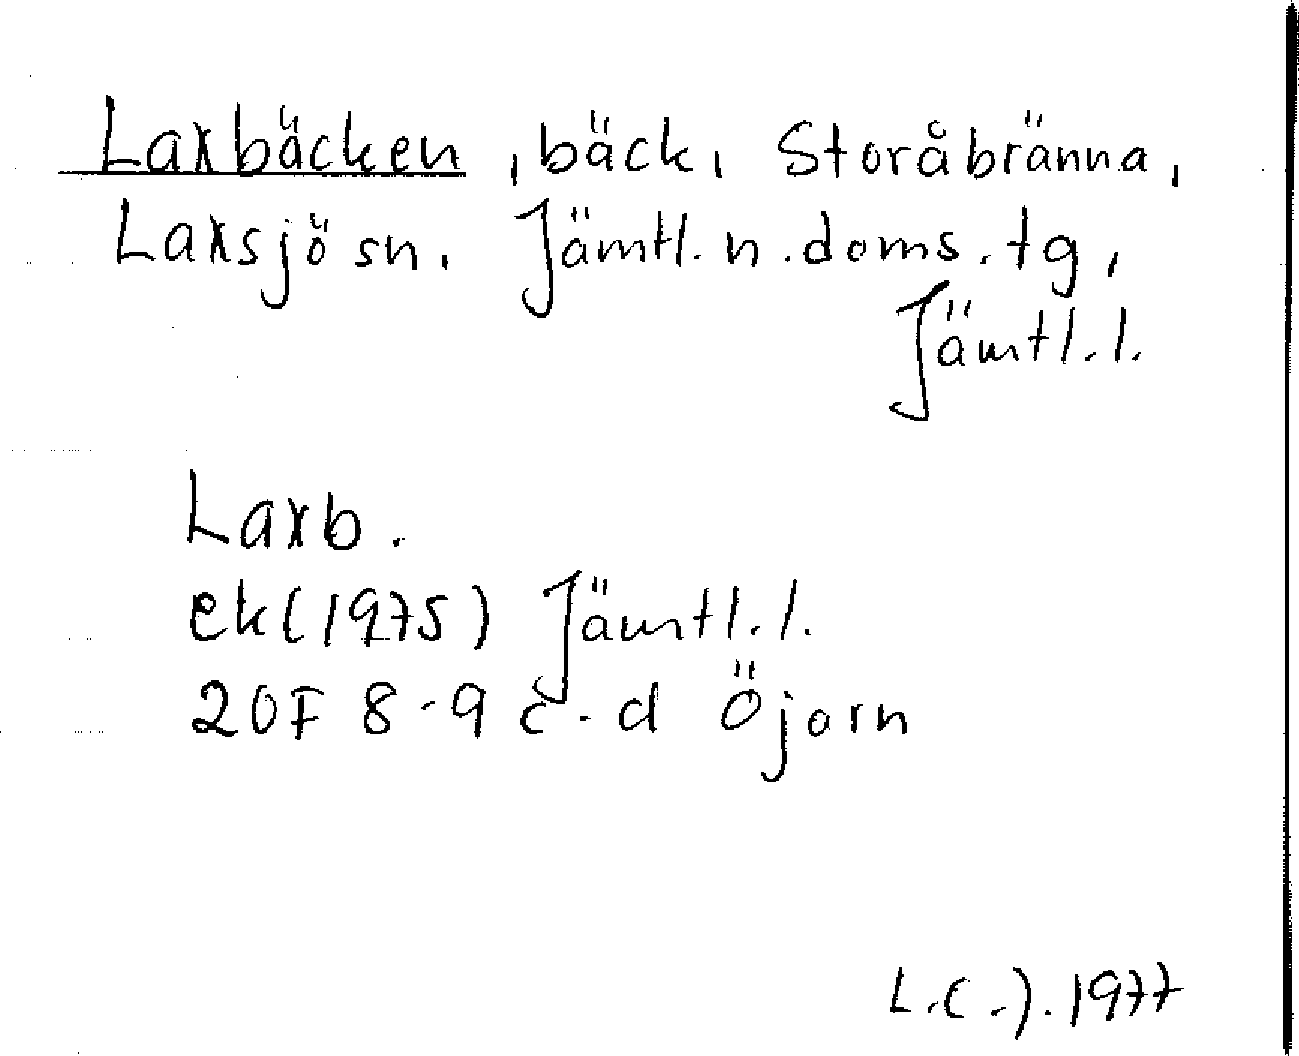 Laxbäcken, bäck, Storåbränna,
Laxsjö sn. Jämtl. n. doms. tg,
Jämtl. l.
Laxb.
ek (1975) Jämtl. l.
20F 8-9 c-d Öjarn
L.C-J. 1977